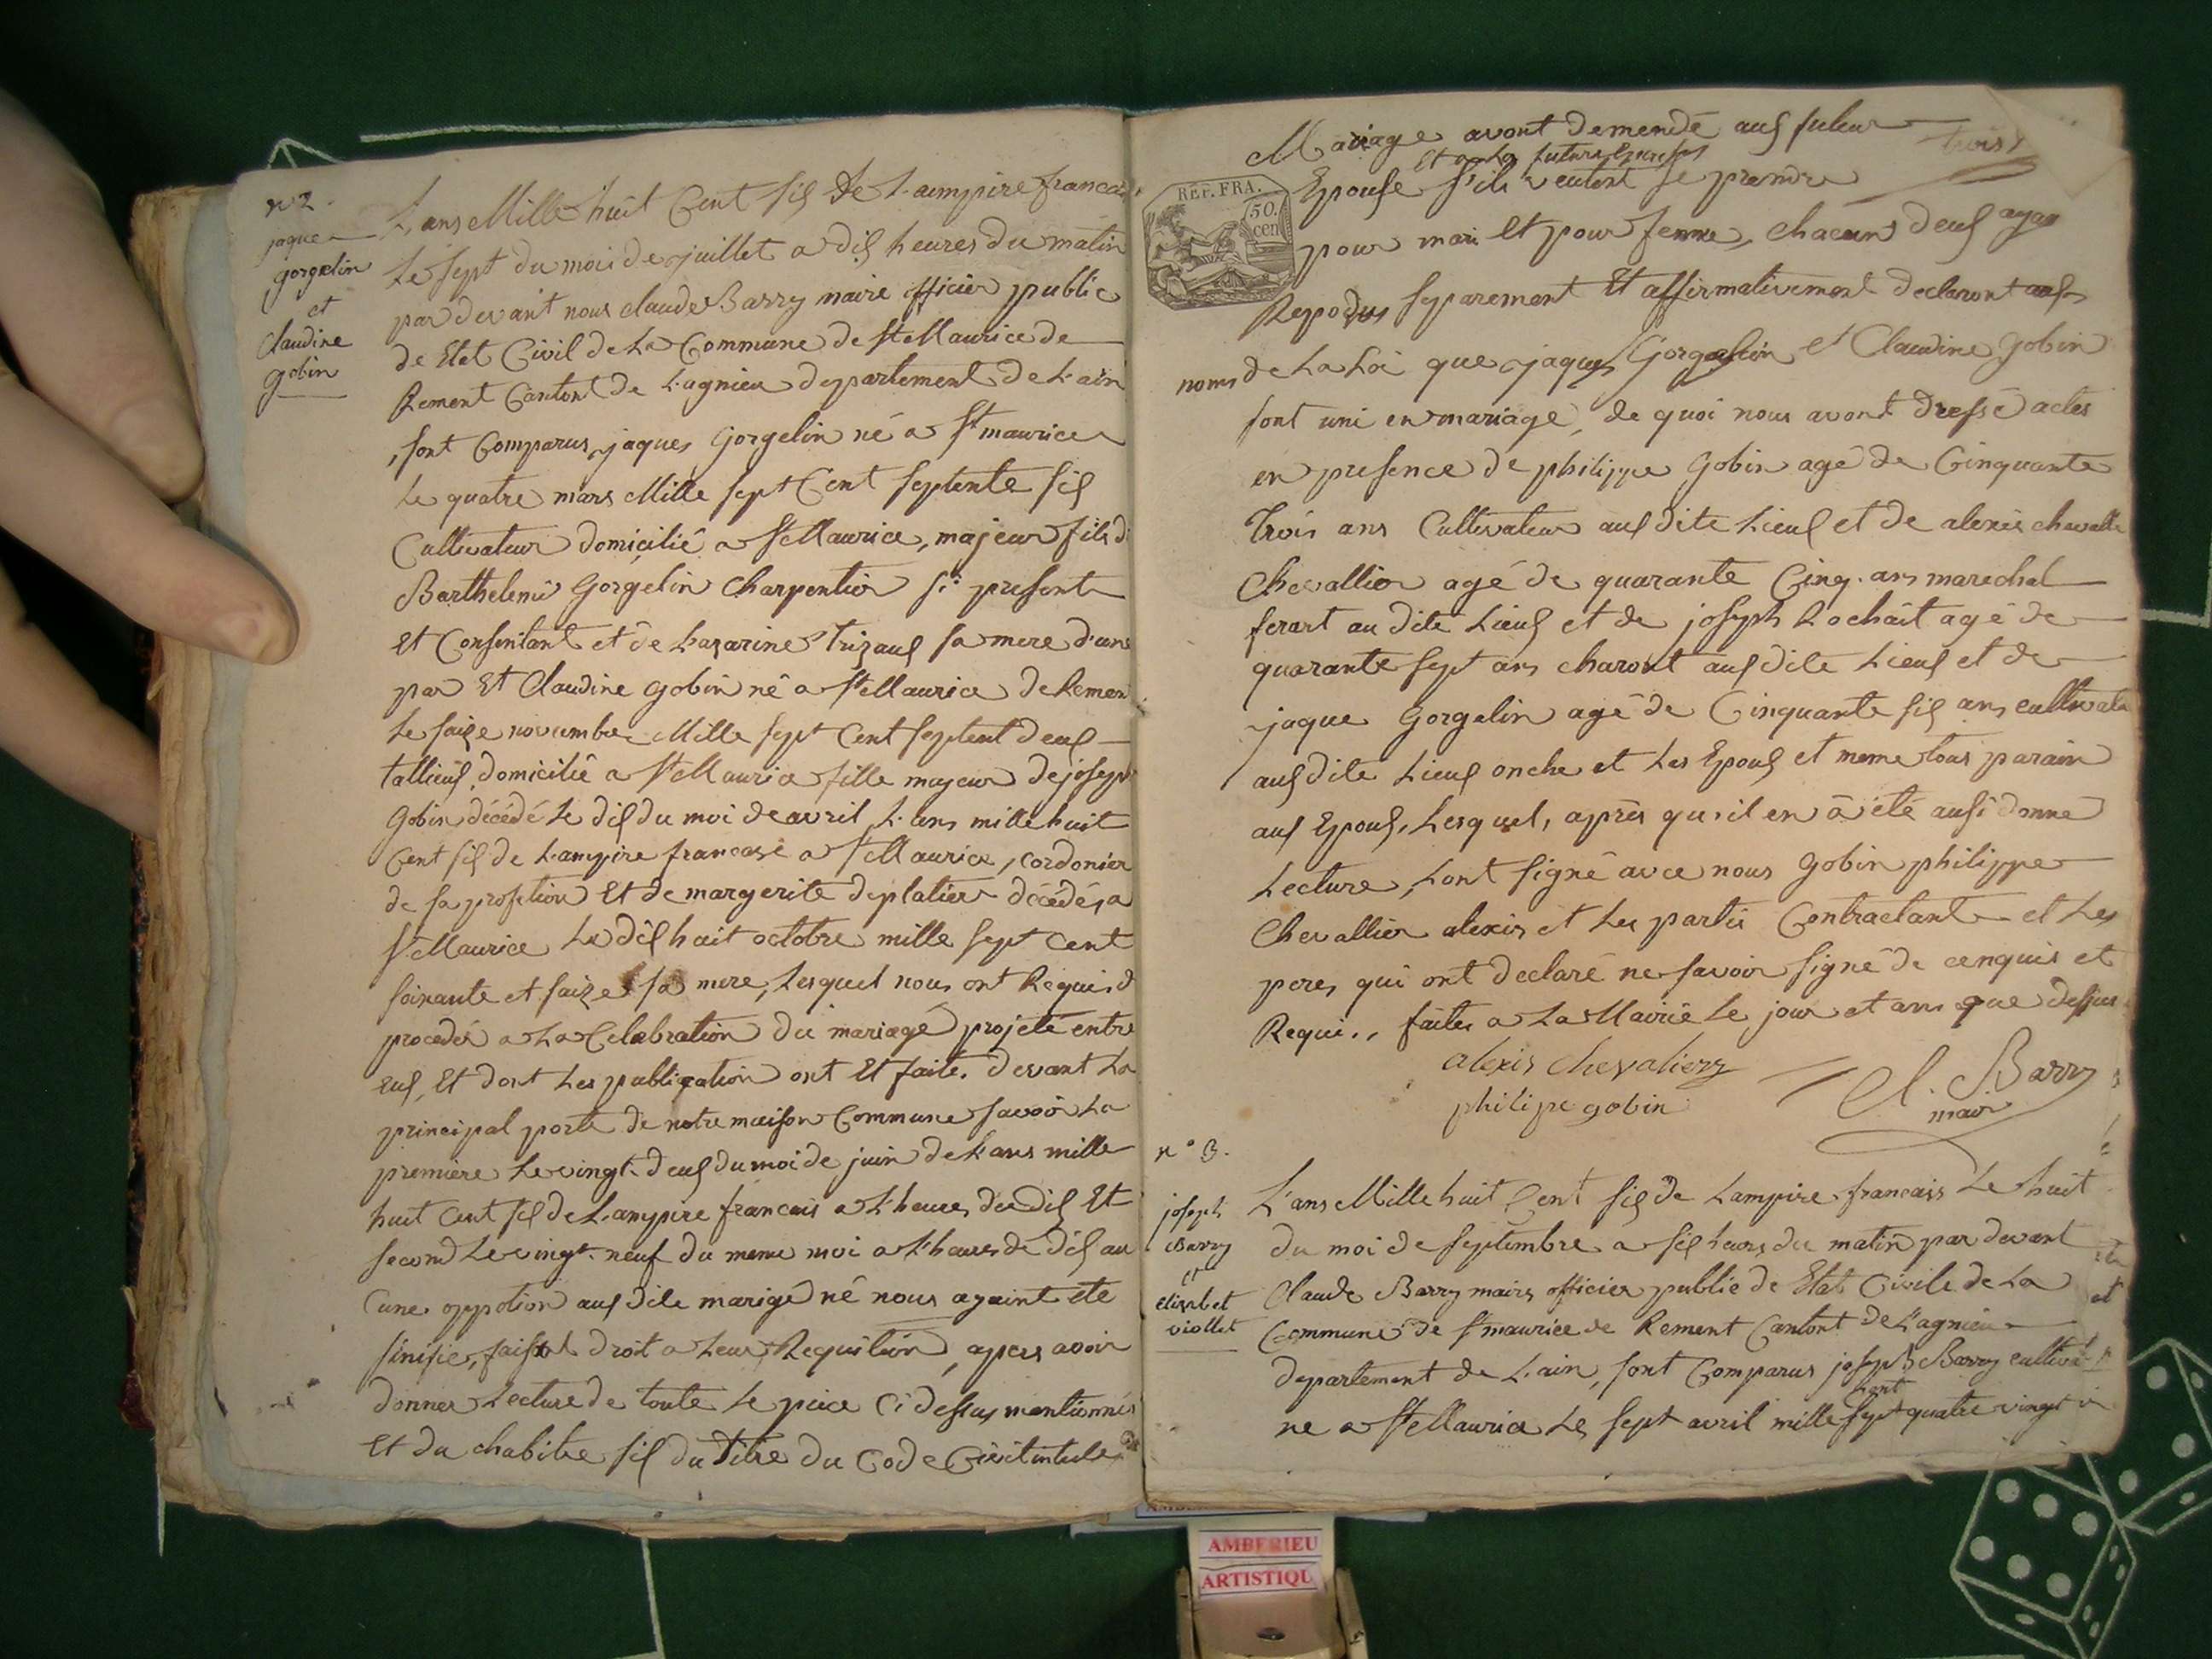 n 2.
jaque
gorgelin
et
Claudine
gobin
L'ans Mille huit Cent sis de L'ampire francai
Le sept du mois de juillet a dis heures du matin
par devant nous claude Barry maire officier public
de Etat Civil de La Commune de St Maurice de
Rement Cantont de Lagnieu departement de L'ain
sont Comparus jaques Gorgelin né a St maurice
Le quatre mars Mille sept Cent septente sis
Cultivateur domicilié a St Maurice, majeur fils d
Barthelemi Gorgelin Charpentier si present
Et Consentant et de Lazarine Trizaus sa mere d'une
par Et Claudine gobin né a St Maurice de Remen
Le saize novembre Mille sept Cent septent deus
tallieus domicilié a St Maurice fille majeur de joseph
Gobin décédé Le dis du moi de avril L'ans mille huit
Cent sis de L'ampire francase a St Maurice, cordonier
de sa profetion Et de margerite deplatier décédés a
St Maurice Le dis huit octobre mille sept cent
soixante et saize sa mere, Lesquel nous ont Requis d
proceder a La Celebration du mariage projeté entre
eus, Et dont Les publication ont Et faite. devant La
principal porte de notre maison Commune savoir La
premiere Le vingt-deus du moi de juin de L'ans mille
huit Cent sis de L'ampire francais a L'heure de dis Et
second Le vingt-neuf du meme moi a L'heure de dis au
Cune oppotion aus dite marige né nous ayaint ete
sinifie, faisant droit a Leur Requition, apers avoir
donner Lecture de toute Le piece Ci dessus mentionnés
Et du chabitre sis du Titre du Code Civil intule
Mariage avont demendé aus futeur
trois
Et a La future Epouse
Epouse s'ils veulent se prendre
REP. FRA.
50.
cen
pour mari Et pour femme, chacuns deus ayan
Repodus separement Et affirmativement declaront aus
noms de La Loi que jaques Gorgelin et Claudine gobin
sont uni en mariage, de quoi nous avont dressé actes
en presence de philippe Gobin agé de Cinquante
Trois ans Cultivateur aus dite Lieus et de alexis chevallie
Chevallier agé de quarante Cinq. ans marechal
ferart au dite Lieus et de joseph Lochait agé de
quarante sept ans charont aus dite Lieus et de
jaque Gorgelin agé de Cinquante sis ans cultivate
aus dite Lieus oncle et Les Epous et meme tous parain
aus Epous, Lesquel, après qu'il en à été ausi donné
Lecture, Lont signé avec nous gobin philippe
Chevallier alexis et Les partis Contractant et Les
peres qui ont declaré ne savoir signé de cenquis et
Requi., faites a La Mairie Le jour et ans que dessus
alexis chevalierz
philipe gobin
Cl. Barry
mair
n° 3.
joseph
Barry
et
elisabet
viollet
L'ans Mille huit Cent sis de Lampire francais Le huit
du moi de septembre a sis heurs du matin par devant
Claude Barry maire officier public de Etat Civile de La
Commune de St maurice de Rement Cantont de L'agnieu
departement de L'ain, sont Comparus joseph Barry cultiva
Cent
ne a St Maurice Le sept avril mille sept quatre vingt
AMBERIEU
ARTISTIQU